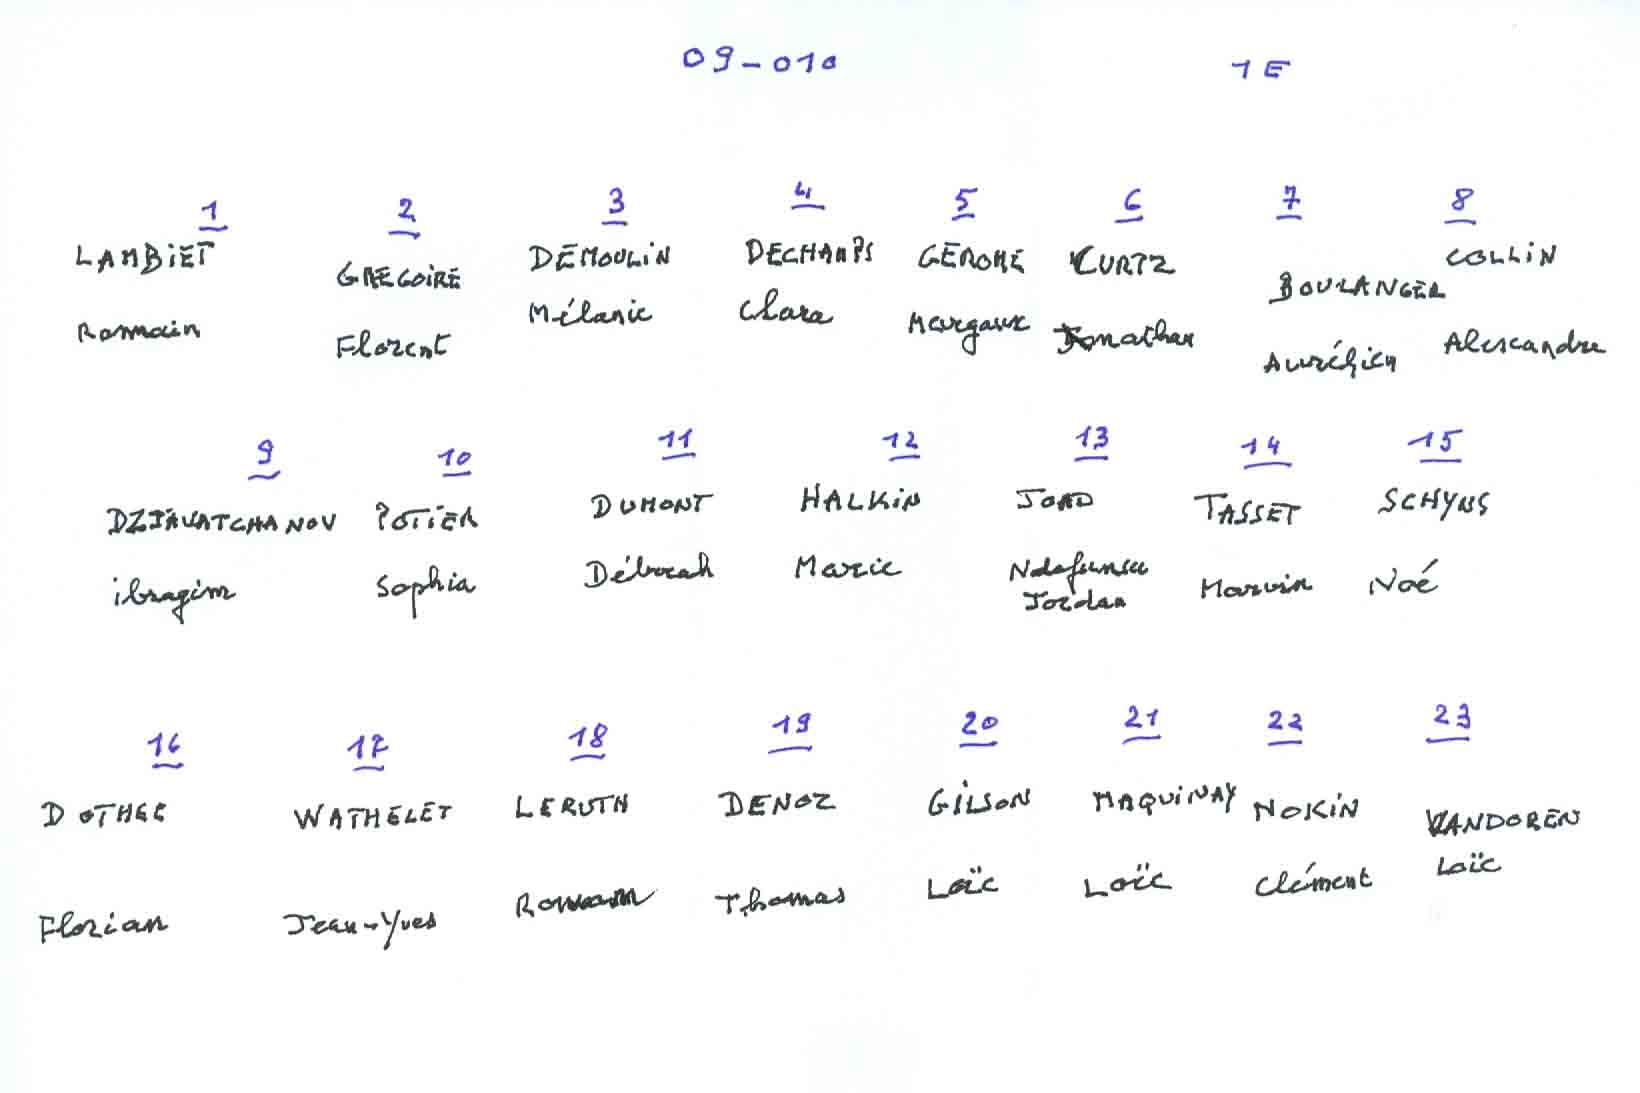 09-010 1E
1 2 3 4 5 6 7 8
LAMBIET GREGOIRE DEMOULIN DECHAMPS GEROME CURTZ BOULANGER COLLIN
Romain Florent Mélanie Clara Margaux Jonathan Aurélien Alexandre
9 10 11 12 13 14 15
DZJAVATCHANOV POTIER DUMONT HALKIN JOAO TASSET SCHYNS
ibragim Sophia Déborah Marie Ndofunsu Marvin Noé
Jordan
16 17 18 19 20 21 22 23
DOTHEE WATHELET LERUTH DENOZ GILSON MAQUINAY NOKIN VANDOREN
Florian Jean-Yves Romain Thomas Loïc Loïc Clément Loïc